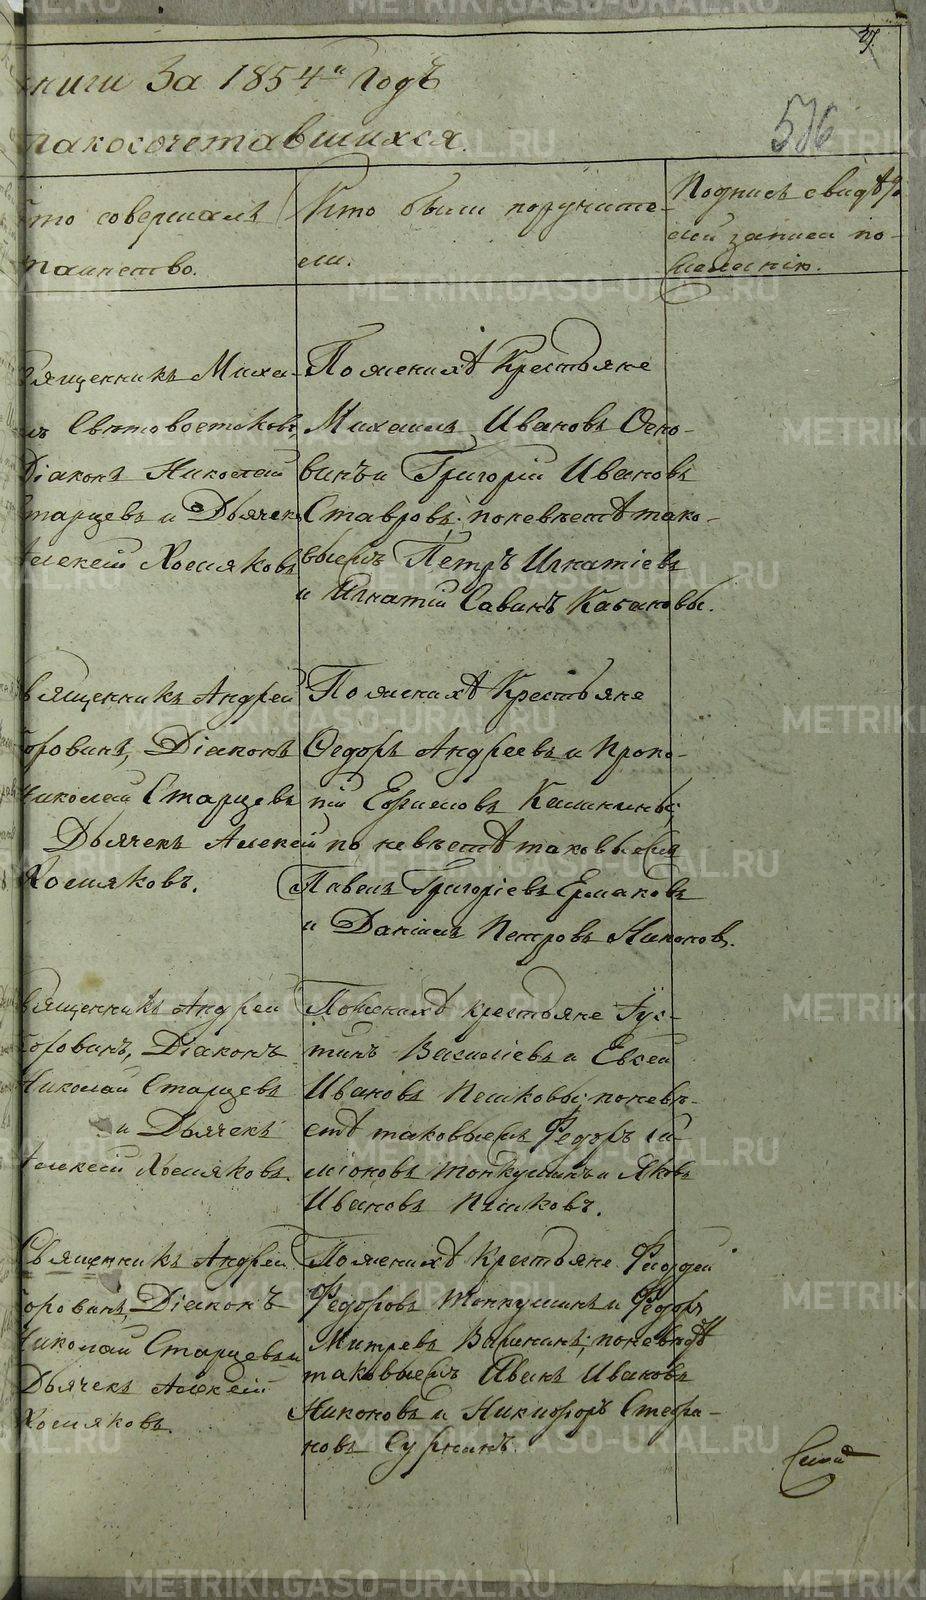 ниги За 1854й Годъ
ракосочетавшихся.
576
Кто совершалъ
таинство.
Кто были поручите-
ели.
Подпись свидѣте
лей записи по
желанію.
Священникъ Миха-
лъ Свѣтовостоковъ,
Діаконъ Николай
Старцевъ и Дьячекъ
Алексѣй Хомяковъ
По женихѣ Крестьяне
Михаилъ Ивановъ Осно-
винъ и Григорій Ивановъ
Ставровъ; по невѣстѣ тако-
выемъ Петръ Игнатіевъ
и Игнатій Савинъ Кабаковы.
Священникъ Андрей
Горовинъ, Діаконъ
Николай Старцевъ
Дьячекъ Алексѣй
Хомяковъ.
По женихѣ Крестьяне
Ѳедоръ Андреевъ и Проко-
пій Ефимовъ Калинины;
по невѣстѣ таковыемъ
Павелъ Григоріевъ Ермаковъ
и Даніилъ Петровъ Никоновъ.
Священникъ Андрей
Горовинъ, Діаконъ
Николай Старцевъ
и Дьячекъ
Алексѣй Хомяковъ.
По женихѣ крестьяне Іус-
тинъ Василіевъ и Евсей
Ивановъ Пешковы; по невѣ-
стѣ таковыемъ Федоръ Си-
міоновъ Тонкушинъ и Яковъ
Ивановъ Пешковъ.
Священникъ Андрей
Горовинъ, Діаконъ
Николай Старцевъ и
Дьячекъ Алексѣй
Хомяковъ.
По женихѣ Крестьяне Фаддей
Федоровъ Тонкушинъ и Федоръ
Митревъ Варинин; по невѣстѣ
таковыемъ Иванъ Ивановъ
Никоновъ и Никифоръ Стефа-
новъ Суринъ.
METRIKI.GASO-URAL.RU